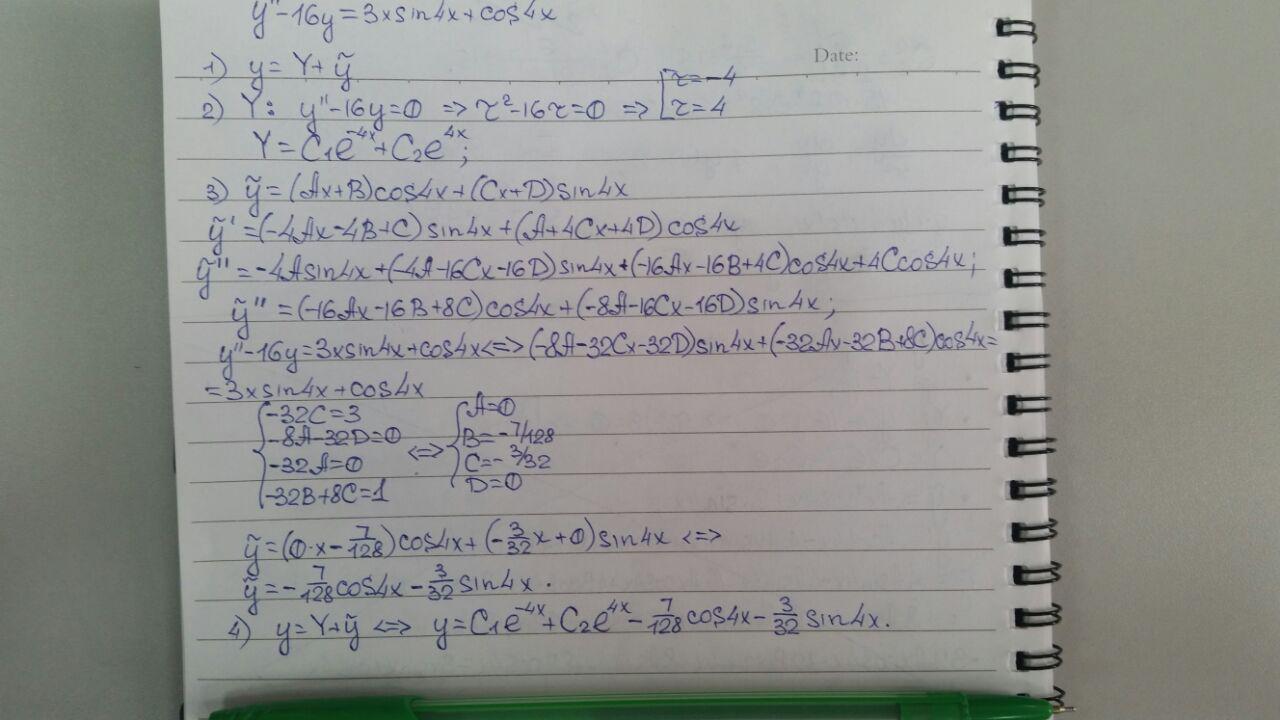 y''-16y=3xsin4x+cos4x
Date:
1) y=Y+ỹ
2) Y: y''-16y=0 => r²-16r=0 => [r=-4
[r=4
Y=C₁e⁻⁴ˣ+C₂e⁴ˣ;
3) ỹ=(Ax+B)cos4x+(Cx+D)sin4x
ỹ'=(-4Ax-4B+C)sin4x+(A+4Cx+4D)cos4x
ỹ''=-4Asin4x+(-4A-16Cx-16D)sin4x+(-16Ax-16B+4C)cos4x+4Ccos4x;
ỹ''=(-16Ax-16B+8C)cos4x+(-8A-16Cx-16D)sin4x;
y''-16y=3xsin4x+cos4x<=>(-8A-32Cx-32D)sin4x+(-32Ax-32B+8C)cos4x=
=3xsin4x+cos4x
{-32C=3 {A=0
-8A-32D=0 <=> B=-7/128
-32A=0 C=-3/32
-32B+8C=1 D=0
ỹ=(0·x-7/128)cos4x+(-3/32x+0)sin4x <=>
ỹ=-7/128cos4x-3/32sin4x.
4) y=Y+ỹ <=> y=C₁e⁻⁴ˣ+C₂e⁴ˣ-7/128cos4x-3/32sin4x.